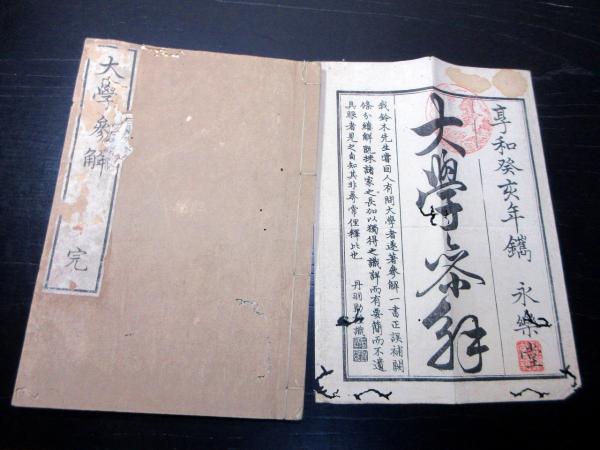 大學參解 完
享和癸亥年鐫 永樂堂
大學參解
我鈴木先生嘗因人有問大學者遂著參解一書正誤補闕
條分縷解既採諸家之長加以獨得之識詳而有要簡而不遺
具眼者見之自知其非尋常俚釋比也
丹羽勖